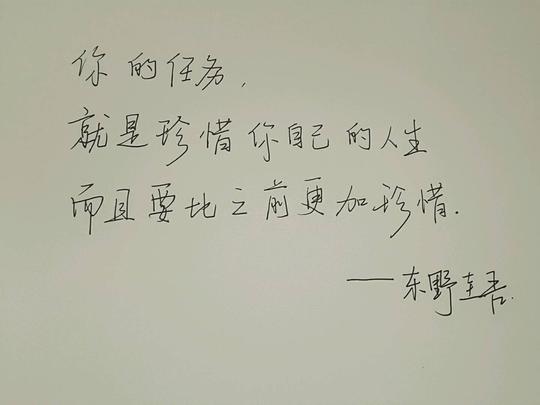 你的任务，
就是珍惜你自己的人生
而且要比之前更加珍惜.
——东野圭吾.